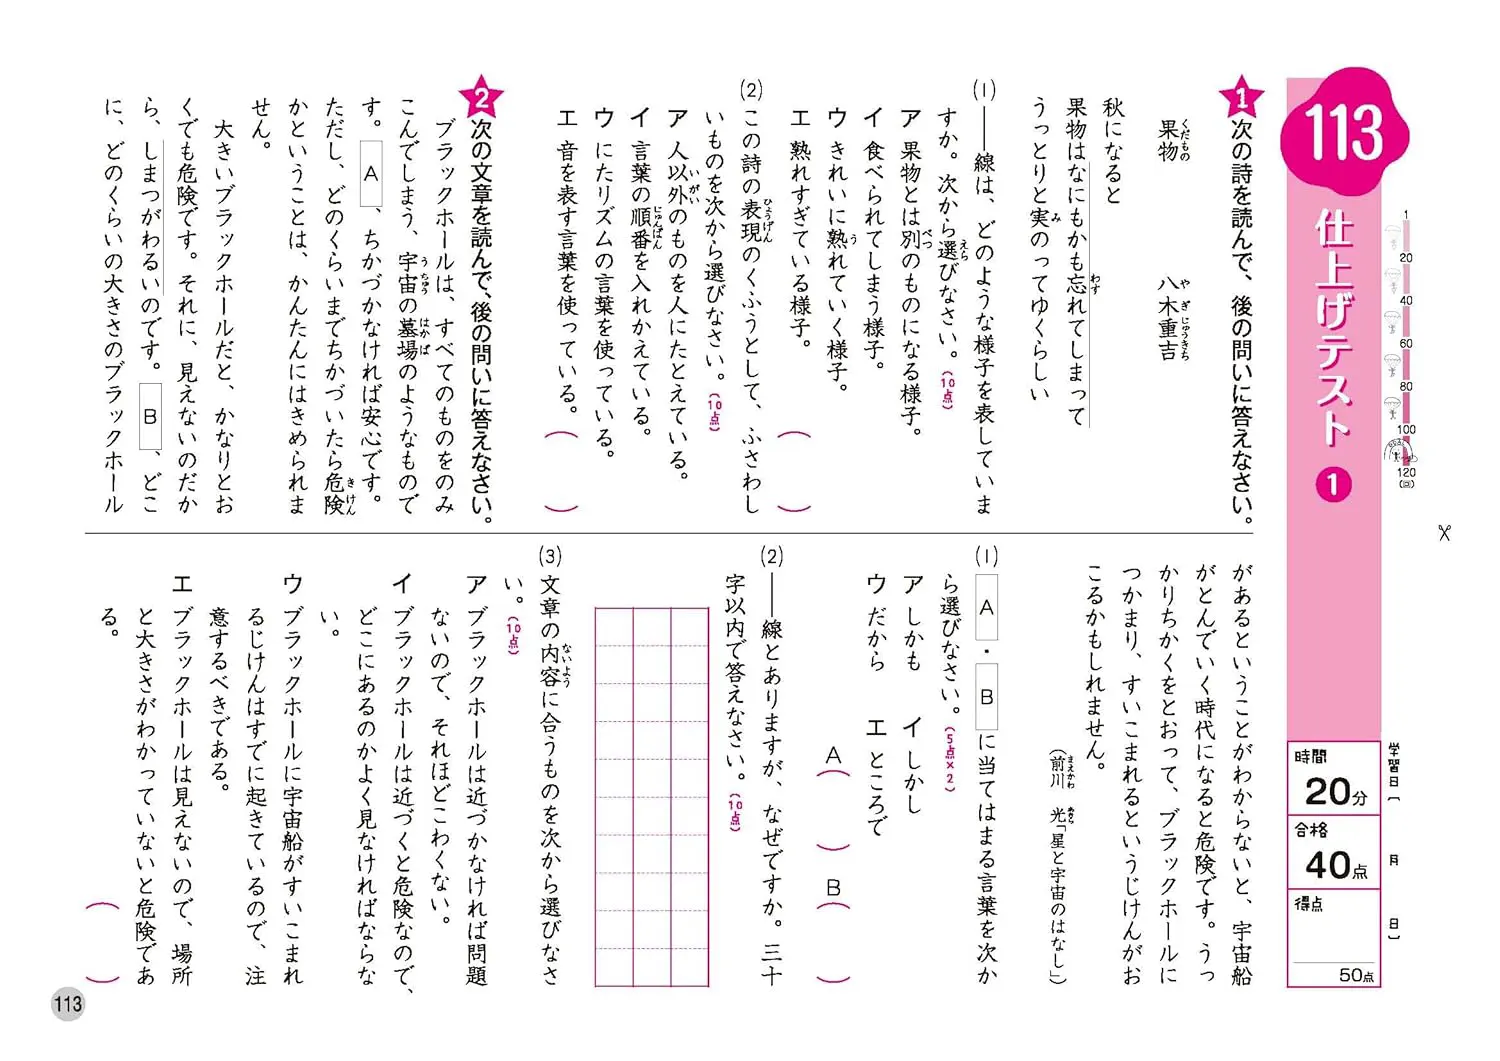 113
仕上げテスト
1
1
20
40
60
80
100
120
(回)
学習日〔 月 日〕
時間
20分
合格
40点
得点
50点
1 次の詩を読んで、後の問いに答えなさい。
果物 八木重吉
くだもの や ぎ じゅうきち
秋になると
果物はなにもかも忘れてしまって
わす
うっとりと実のってゆくらしい
み
(1) ――線は、どのような様子を表していま
すか。次から選びなさい。(10点)
えら
ア 果物とは別のものになる様子。
べつ
イ 食べられてしまう様子。
ウ きれいに熟れていく様子。
う
エ 熟れすぎている様子。
( )
(2) この詩の表現のくふうとして、ふさわし
ひょうげん
いものを次から選びなさい。(10点)
ア 人以外のものを人にたとえている。
いがい
イ 言葉の順番を入れかえている。
じゅんばん
ウ にたリズムの言葉を使っている。
エ 音を表す言葉を使っている。
( )
2 次の文章を読んで、後の問いに答えなさい。
ブラックホールは、すべてのものをのみ
こんでしまう、宇宙の墓場のようなもので
うちゅう はかば
す。 A 、ちかづかなければ安心です。
ただし、どのくらいまでちかづいたら危険
きけん
かということは、かんたんにはきめられま
せん。
大きいブラックホールだと、かなりとお
くでも危険です。それに、見えないのだか
ら、しまつがわるいのです。 B 、どこ
に、どのくらいの大きさのブラックホール
があるということがわからないと、宇宙船
がとんでいく時代になると危険です。うっ
かりちかくをとおって、ブラックホールに
つかまり、すいこまれるというじけんがお
こるかもしれません。
(前川 光「星と宇宙のはなし」)
まえかわ あきら
(1) A ・ B に当てはまる言葉を次か
ら選びなさい。(5点×2)
ア しかも イ しかし
ウ だから エ ところで
A( ) B( )
(2) ――線とありますが、なぜですか。三十
字以内で答えなさい。(10点)
(3) 文章の内容に合うものを次から選びなさ
ないよう
い。(10点)
ア ブラックホールは近づかなければ問題
ないので、それほどこわくない。
イ ブラックホールは近づくと危険なので、
どこにあるのかよく見なければならな
い。
ウ ブラックホールに宇宙船がすいこまれ
るじけんはすでに起きているので、注
意するべきである。
エ ブラックホールは見えないので、場所
と大きさがわかっていないと危険であ
る。
( )
113